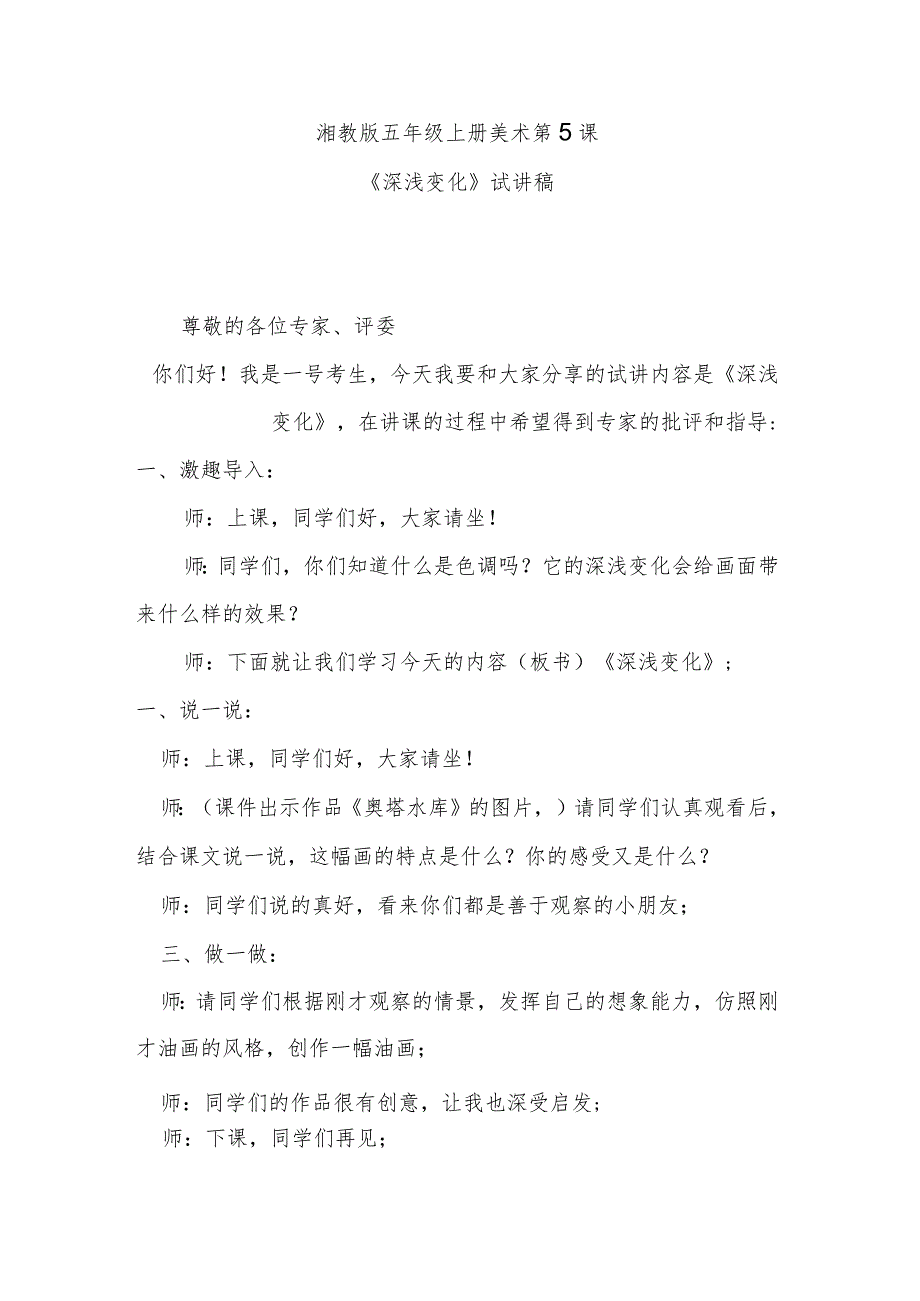 湘教版五年级上册美术第5课
《深浅变化》试讲稿
尊敬的各位专家、评委
你们好！我是一号考生，今天我要和大家分享的试讲内容是《深浅
变化》，在讲课的过程中希望得到专家的批评和指导:
一、激趣导入：
师：上课，同学们好，大家请坐！
师：同学们，你们知道什么是色调吗？它的深浅变化会给画面带
来什么样的效果？
师：下面就让我们学习今天的内容（板书）《深浅变化》;
一、说一说：
师：上课，同学们好，大家请坐！
师：（课件出示作品《奥塔水库》的图片，）请同学们认真观看后，
结合课文说一说，这幅画的特点是什么？你的感受又是什么？
师：同学们说的真好，看来你们都是善于观察的小朋友；
三、做一做：
师：请同学们根据刚才观察的情景，发挥自己的想象能力，仿照刚
才油画的风格，创作一幅油画；
师：同学们的作品很有创意，让我也深受启发;
师：下课，同学们再见；